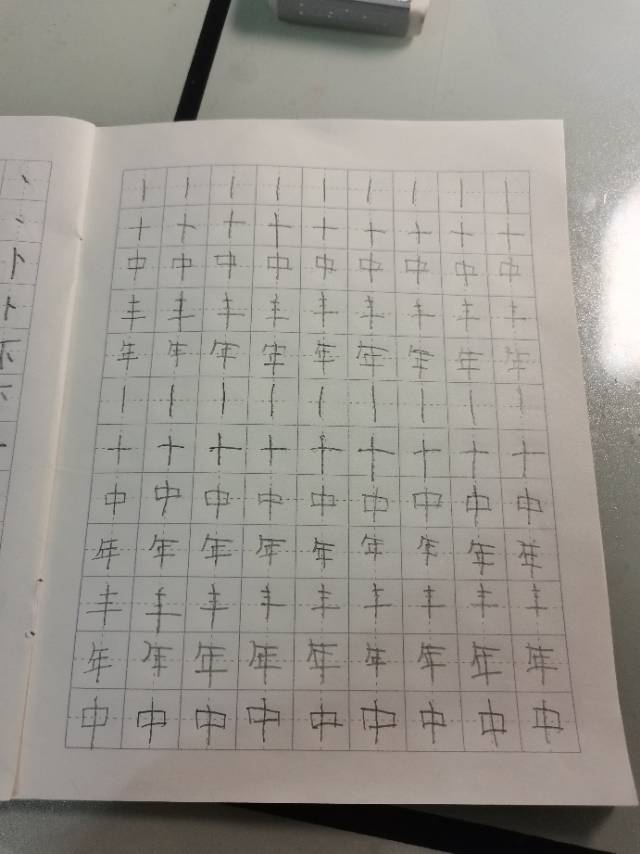 丨丨丨丨丨丨丨丨丨
十十十十十十十十十
中中中中中中中中中
丰丰丰丰丰丰丰丰丰
年年年年年年年年年
丨丨丨丨丨丨丨丨丨
十十十十十十十十十
中中中中中中中中中
年年年年年年年年年
丰丰丰丰丰丰丰丰丰
年年年年年年年年年
中中中中中中中中中